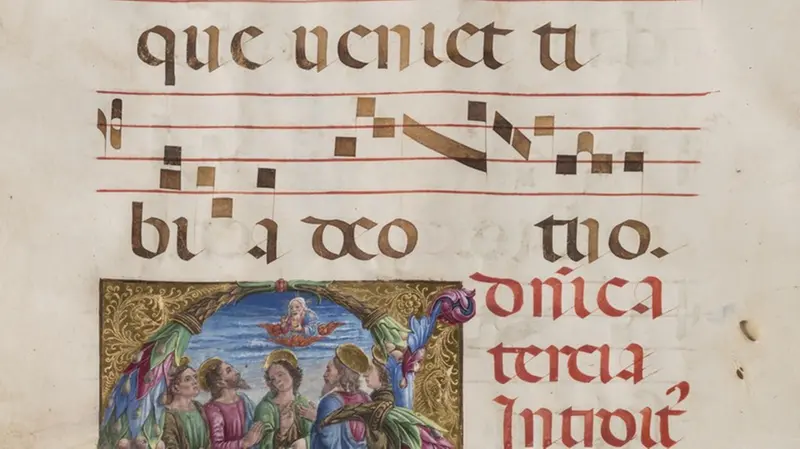 que veniet ti
bi a deo tuo.
dn̄ica
tercia
Introit᾽